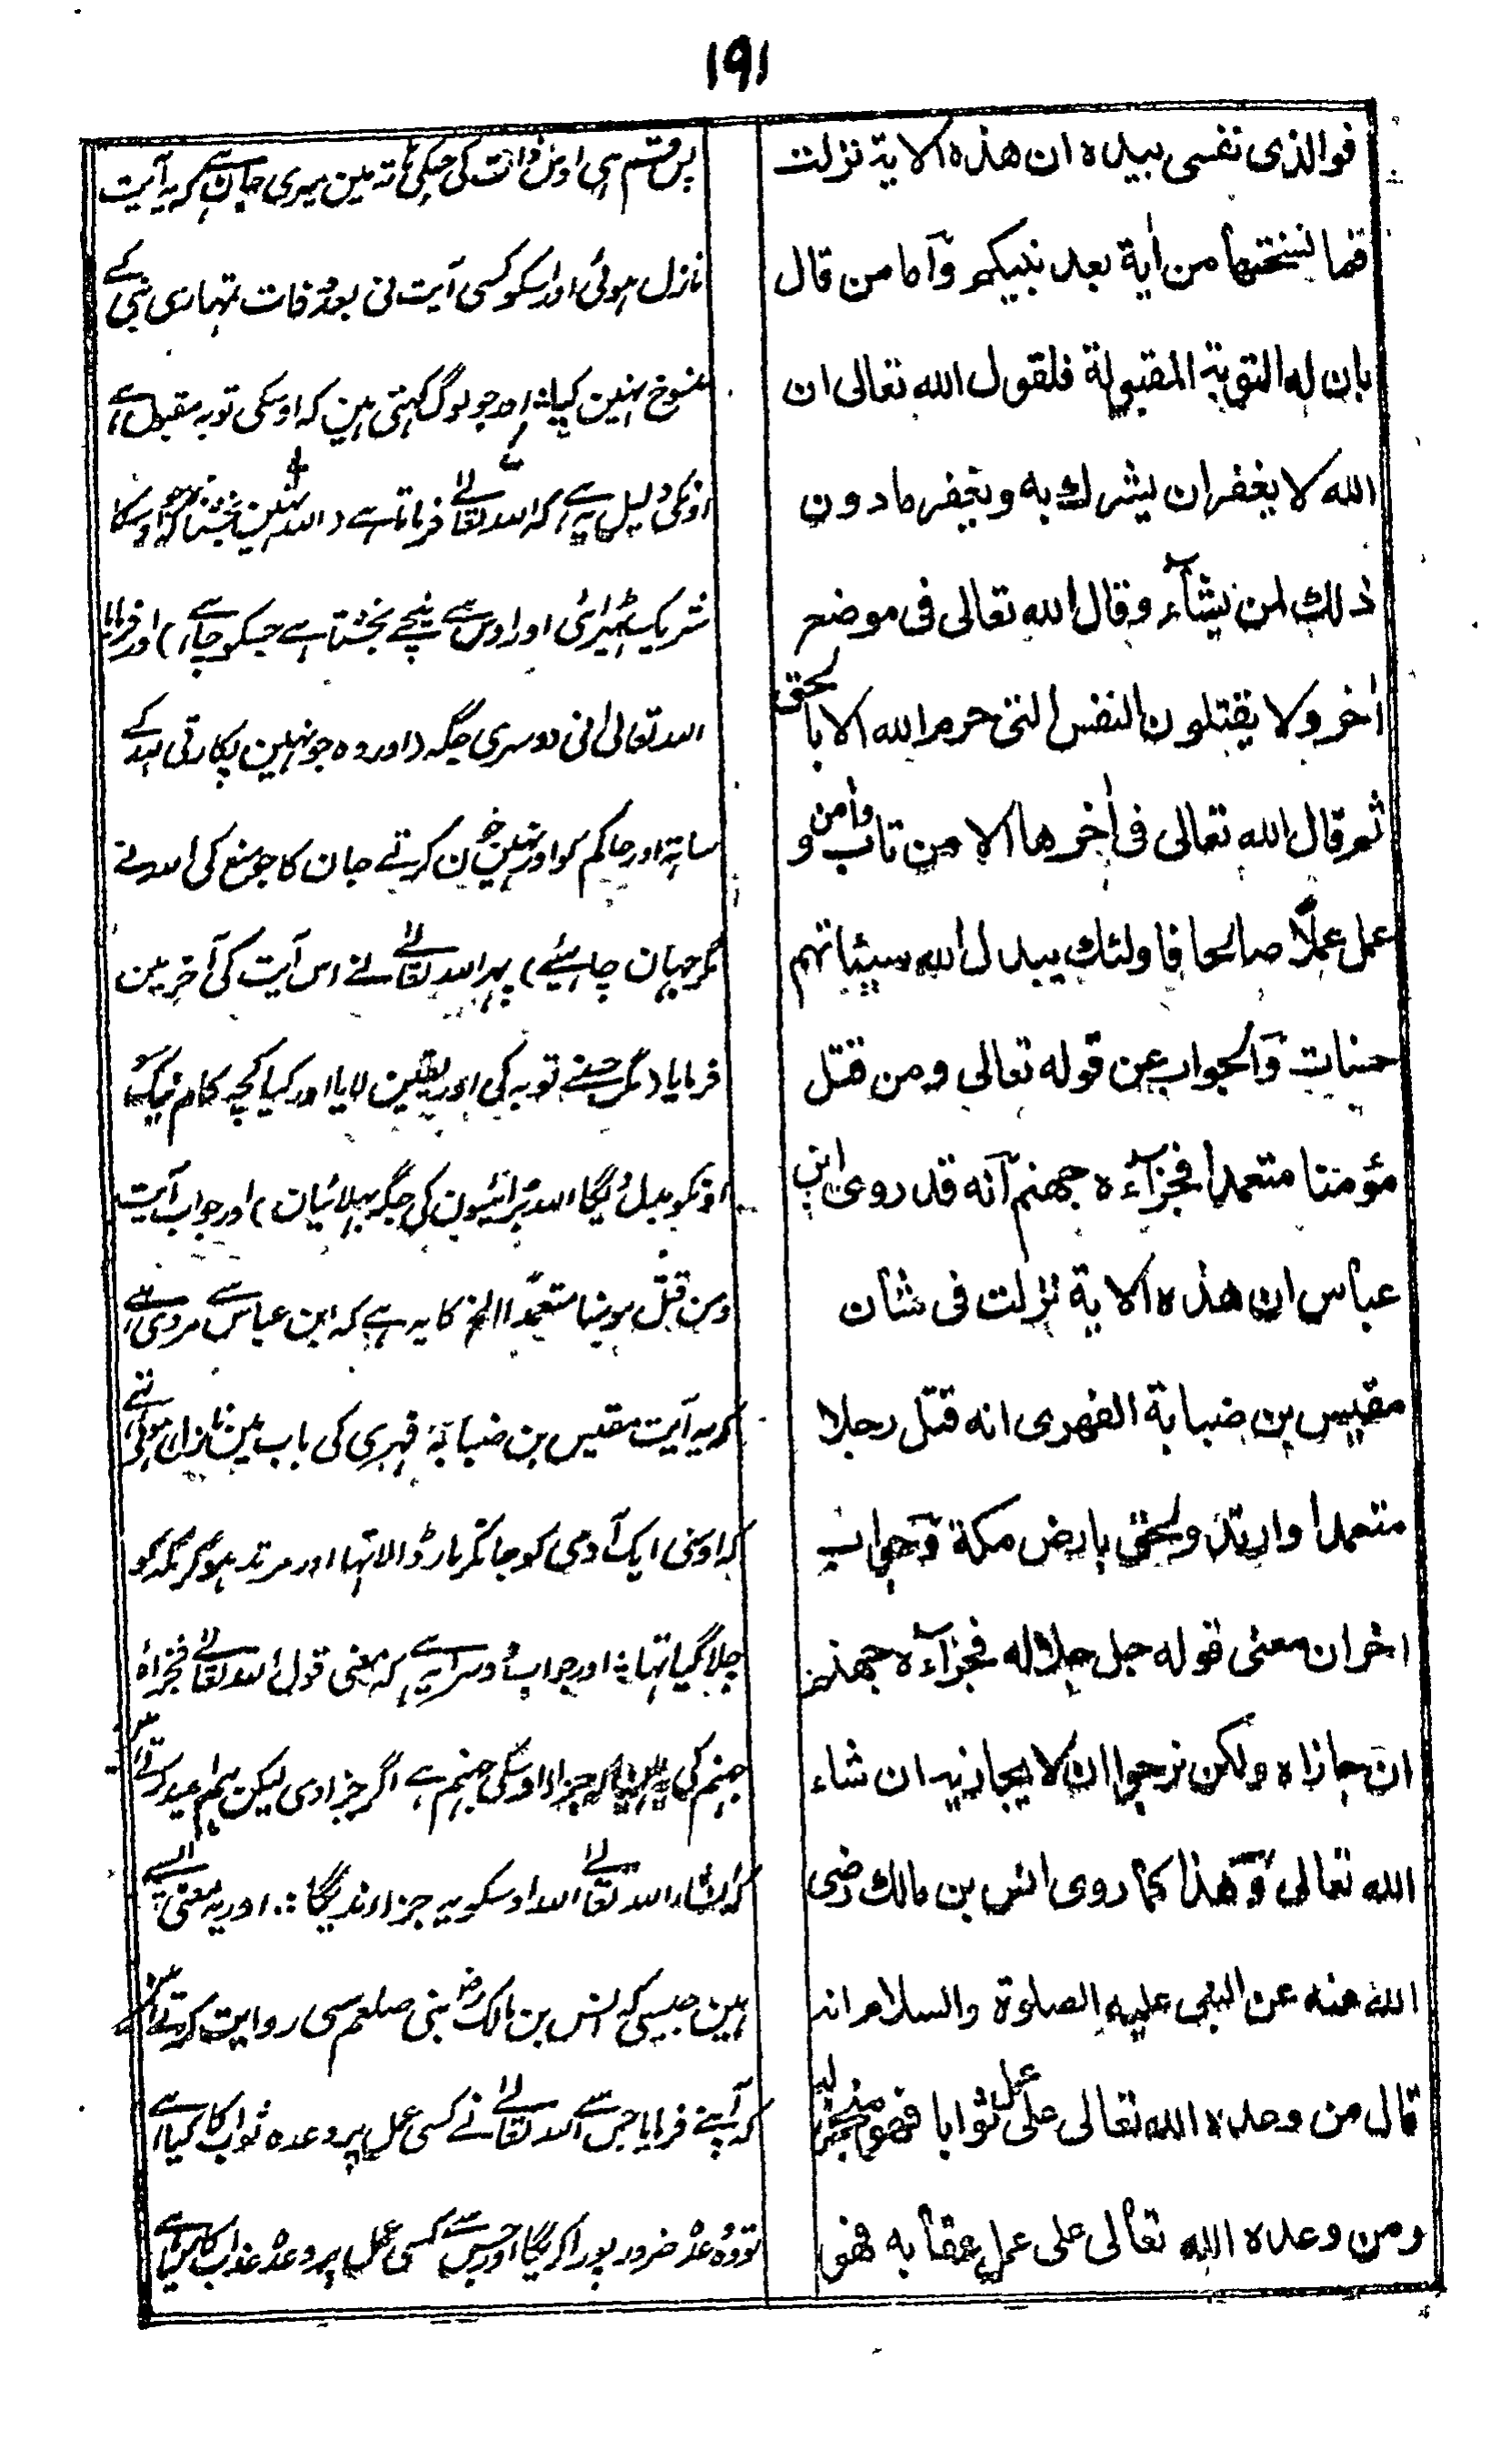 ۱۹۱
فوالذی نفسی بیده ان هذه الایة نزلت
فما نسختها من اٰیة بعد نبیکم وَاما من قال
بان له التوبة المقبولة فلقول الله تعالی ان
الله لا یغفر ان یشرك به ویغفر ما دون
ذلك لمن یشآء وقال الله تعالی فی موضع
اٰخر ولا یقتلون النفس التی حرم الله الا بالحق
ثم قال الله تعالی فی اٰخرها الا من تاب واٰمن و
عمل عملًا صالحا فاولئك یبدل الله سیئاتهم
حسنات وَالجواب عن قوله تعالی ومن قتل
مؤمنا متعمدا فجزآءه جهنم اَنه قد روی ابن
عباس ان هذه الایة نزلت فی شأن
مقیس بن ضبابة الفهری انه قتل رجلا
متعمدا وارتد ولحق بارض مکة وَجواب
اخر ان معنی قوله جل جلاله فجزآءه جهنم
ان جازاه ولکن نرجوا ان لا یجازیه ان شاء
الله تعالی وَهذا کما روی انس بن مالك رضی
الله عنه عن النبی علیه الصلوة والسلام انه
قال من وعده الله تعالی علی عمل ثوابا فهو منجز له
ومن وعده الله تعالی علی عمل عقابه فهو
پس قسم ہی اوس ذات کی جسکی ہاتہ مین میری جان ہے کہ یہ آیت
نازل ہوئی اور اسکو کسی آیت نی بعد وفات تمہاری نبی کے
منسوخ نہین کیا اور جو لوگ کہتی ہین کہ اوسکی توبہ مقبول ہے
اونکی دلیل یہ ہے کہ اللہ تعالے فرماتا ہے (اللہ نہین بخشتا کہ اوسکا
شریک ٹہیرائی اور اوس سے نیچے بخشتا ہے جسکو چاہے) اور فرمایا
اللہ تعالی نی دوسری جگہ (اور وہ جو نہین پکارتی اللہ کے
ساتہ اور حاکم کو اور نہین خون کرتے جان کا جو منع کی اللہ نے
مگر جہان چاہئیے) پہر اللہ تعالے نے اس آیت کی آخر مین
فرمایا (مگر جسنے توبہ کی اور یقین لایا اور کیا کچہ کام نیک سو
اونکو بدل دیگا اللہ برائیون کی جگہ بہلائیان) اور جواب آیت
ومن قتل مومنا متعمدًا الخ کا یہ ہے کہ ابن عباس سے مروی ہے
کہ یہ آیت مقیس بن ضبابۃ فہری کی باب مین نازل ہوئی ہے
کہ اوسنی ایک آدمی کو جانکر مار ڈالا تہا اور مرتد ہوکر مکہ کو
چلا گیا تہا اور جواب دوسرا یہ ہے کہ معنی قول اللہ تعالے فجزاؤہ
جہنم کی یہ ہین کہ جزا اوسکی جہنم ہے اگر جزا دی لیکن ہم امید کرتے ہین
کہ انشاء اللہ تعالے اللہ اوسکو یہ جزا ندیگا ؞ اور یہ معنی ایسے
ہین جیسی کہ انس بن مالک رض نبی صلعم سی روایت کرتے ہین
کہ آپنے فرمایا جس سے اللہ تعالے نے کسی عمل پر وعدہ ثواب کا کیا ہے
تو وہ وعدہ ضرور پورا کریگا اور جس سے کسی عمل پر وعدہ عذاب کا کیا ہے